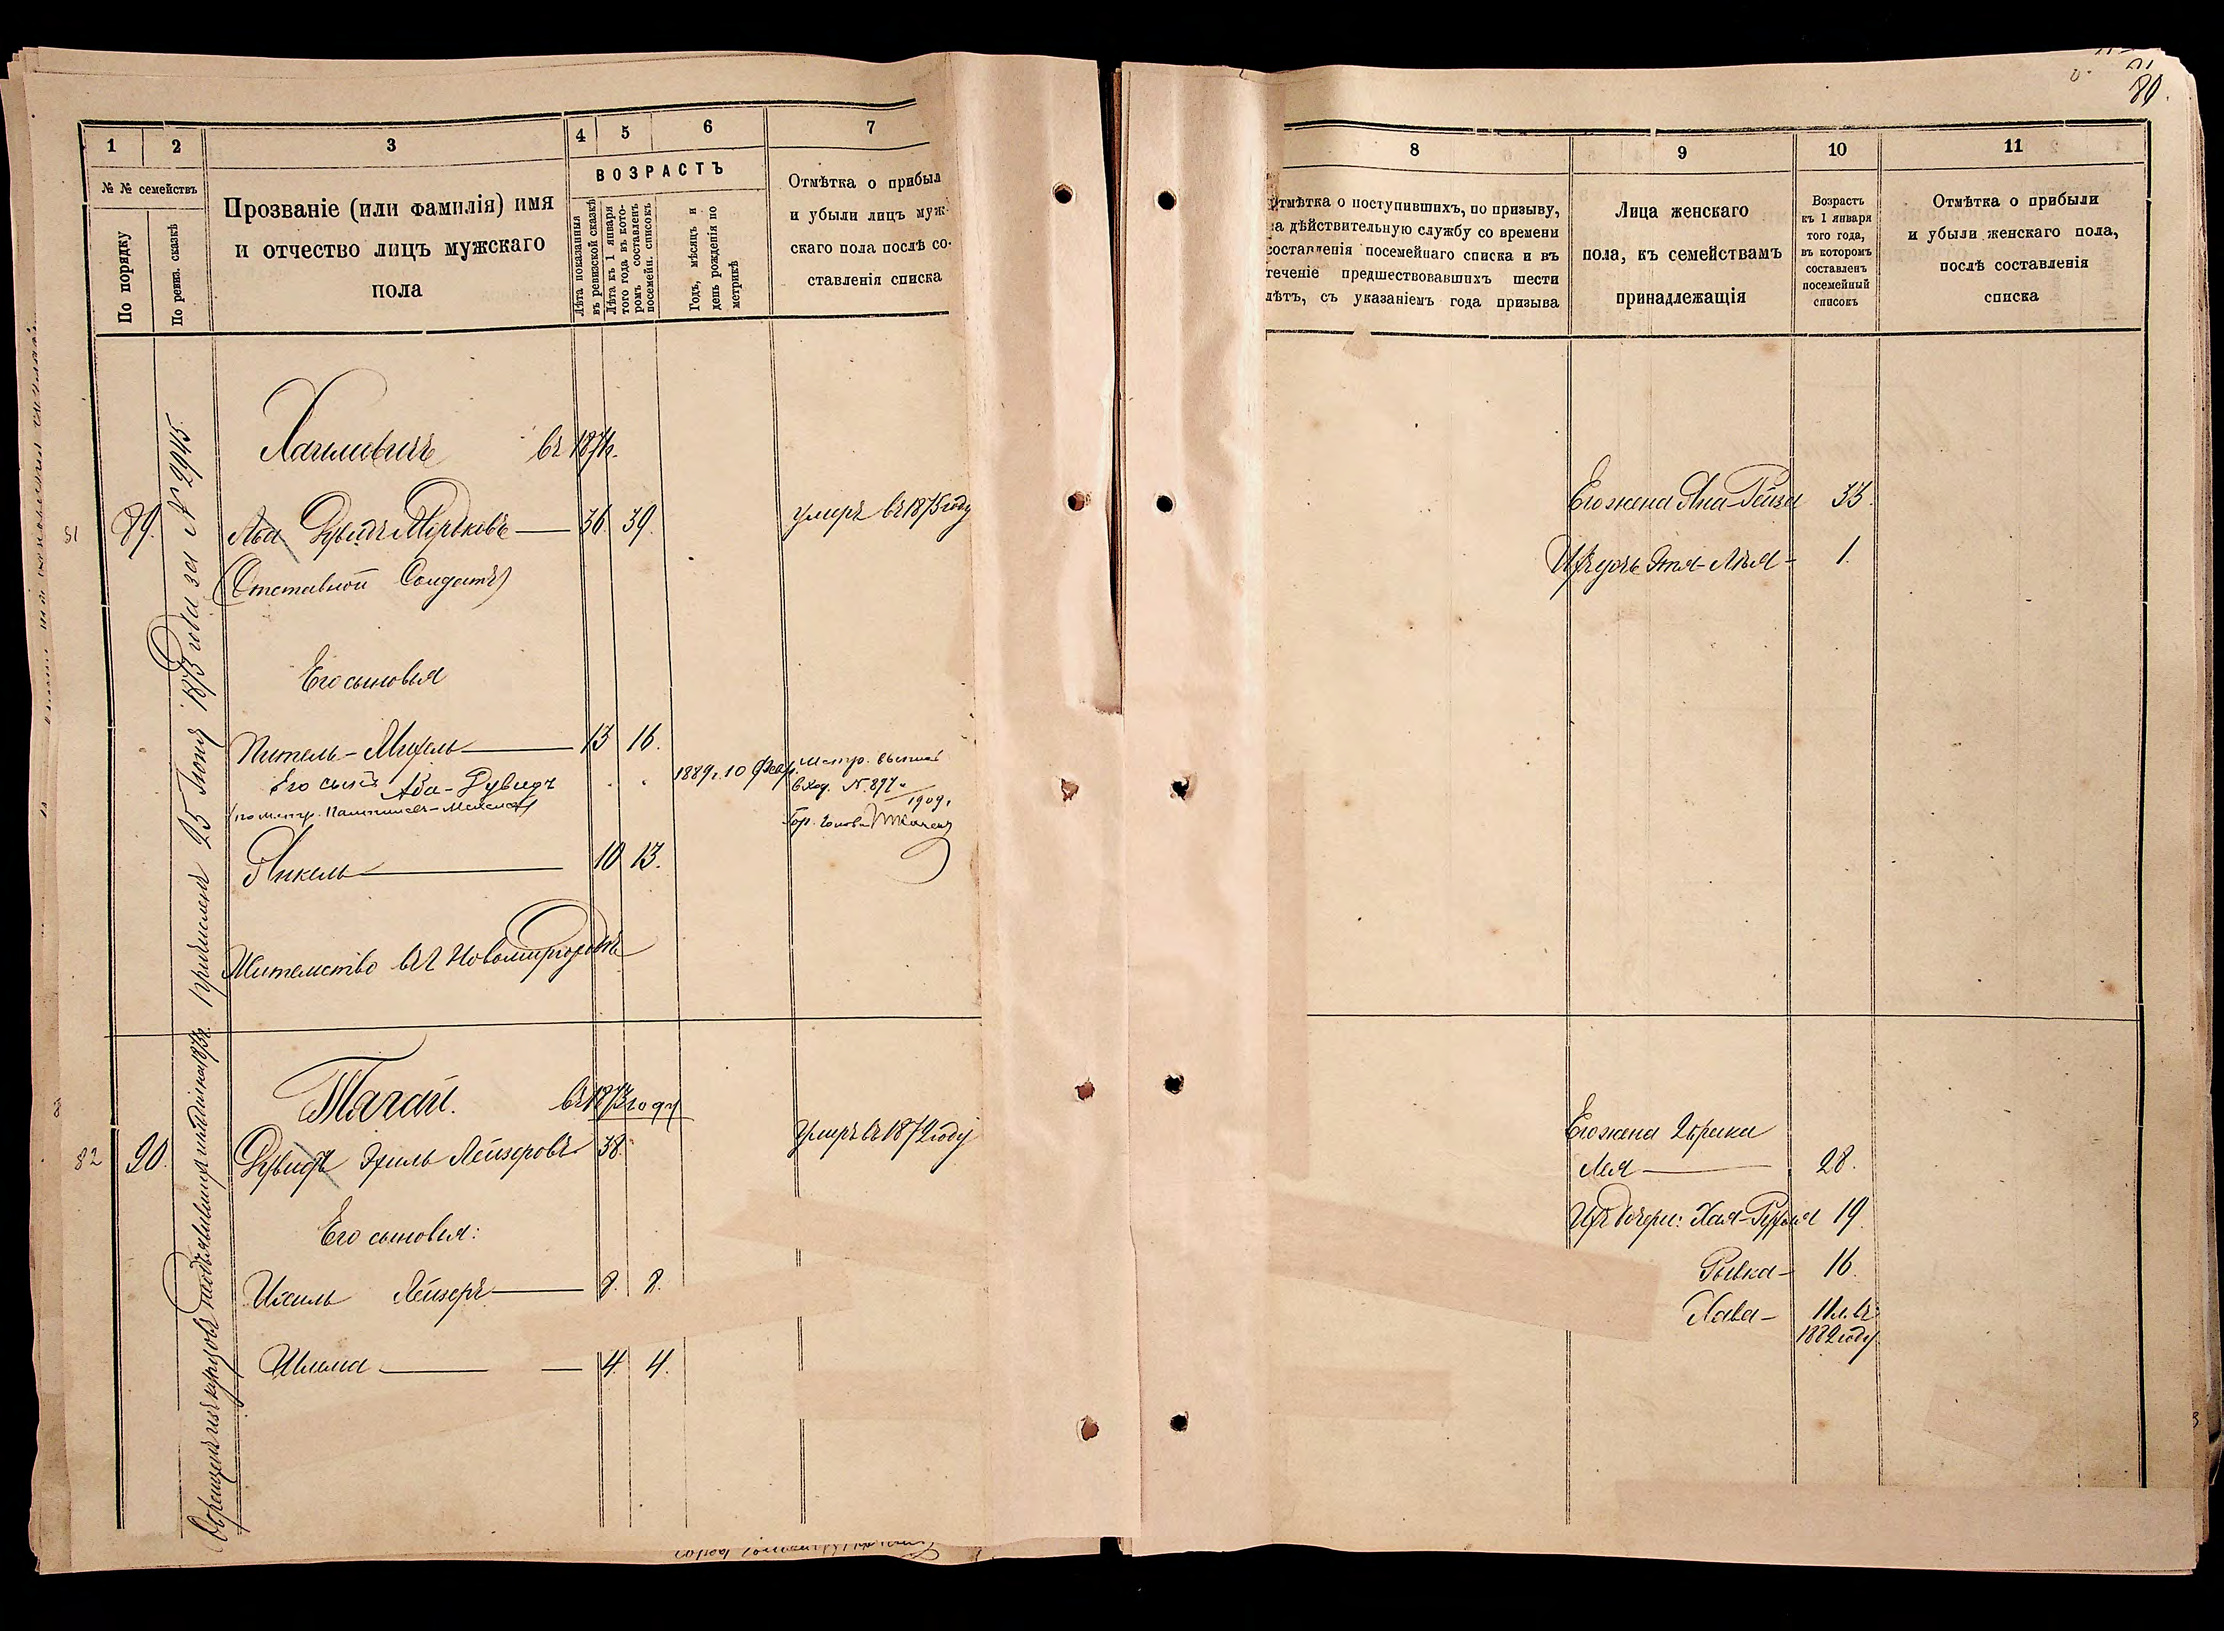 80.
1
2
3
4
5
6
7
№ № семействъ
По порядку
По ревиз. сказкѣ
Прозваніе (или фамилія) имя
и отчество лицъ мужскаго
пола
ВОЗРАСТЪ
Лѣта показанныя
въ ревизской сказкѣ
Лѣта къ 1 января
того года въ кото-
ромъ составленъ
посемейн. списокъ
Годъ, мѣсяцъ и
день рожденія по
метрикѣ
Отмѣтка о прибыл
и убыли лицъ муж-
скаго пола послѣ со-
ставленія списка
81
89.
причислен 25 Іюня 1873 года за № 2945.
въ 1874г.
Аба Дувидъ Мордковъ — 36. 39.
умеръ въ 1875 году
(Отставной Солдатъ)
Его сыновья
Михель — 13 16.
Его сынъ Аба-Дувидъ
1889 г. 10 Февр.
Метр. выпись
вход. № 897
1909 г.
Гор. Голова
Янкель — 10 13.
Жительство въ г. Новомиргородѣ
82
90.
Тягай.
въ 1873 году
Дувидъ Эхиль Лейзеровъ 38.
Умеръ въ 1872 году
Его сыновья:
Ихиль Лейзеръ — 8. 8.
Шлема — 4. 4.
8
9
10
11
Отмѣтка о поступившихъ, по призыву,
на дѣйствительную службу со времени
составленія посемейнаго списка и въ
теченіе предшествовавшихъ шести
лѣтъ, съ указаніемъ года призыва
Лица женскаго
пола, къ семействамъ
принадлежащія
Возрастъ
къ 1 января
того года,
въ которомъ
составленъ
посемейный
списокъ
Отмѣтка о прибыли
и убыли женскаго пола,
послѣ составленія
списка
Его жена Яна-Рейза 33.
Ихъ дочь Этя-Лея - 1.
Его жена Двойра
Лея — 28.
Ихъ дочери: Хая-Руфля 19.
Рывка - 16.
Хава - 11 л. въ
1882 году